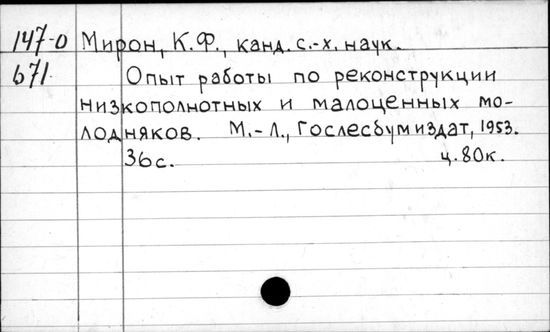 147-0 Мирон, К.Ф., канд. с.-х. наук.
671 Опыт работы по реконструкции
низкополнотных и малоценных мо-
лодняков. М.-Л., Гослесбумиздат, 1953.
36с. ц. 80к.